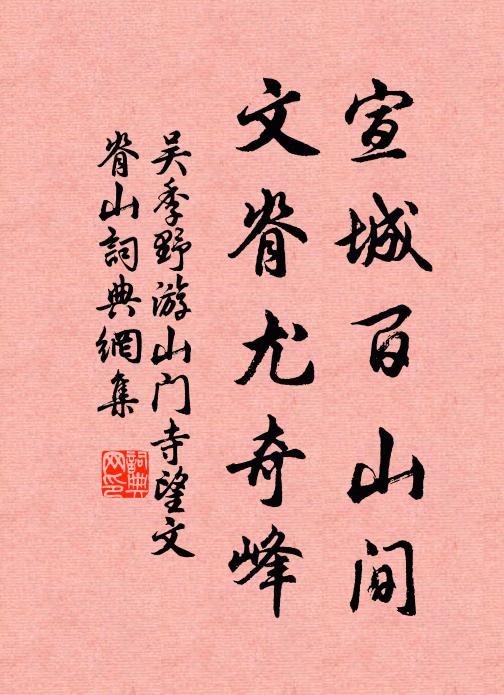 宣城百山间
文脊尤奇峰
吴季野游山门寺望文
脊山詞典網集
詞典網印